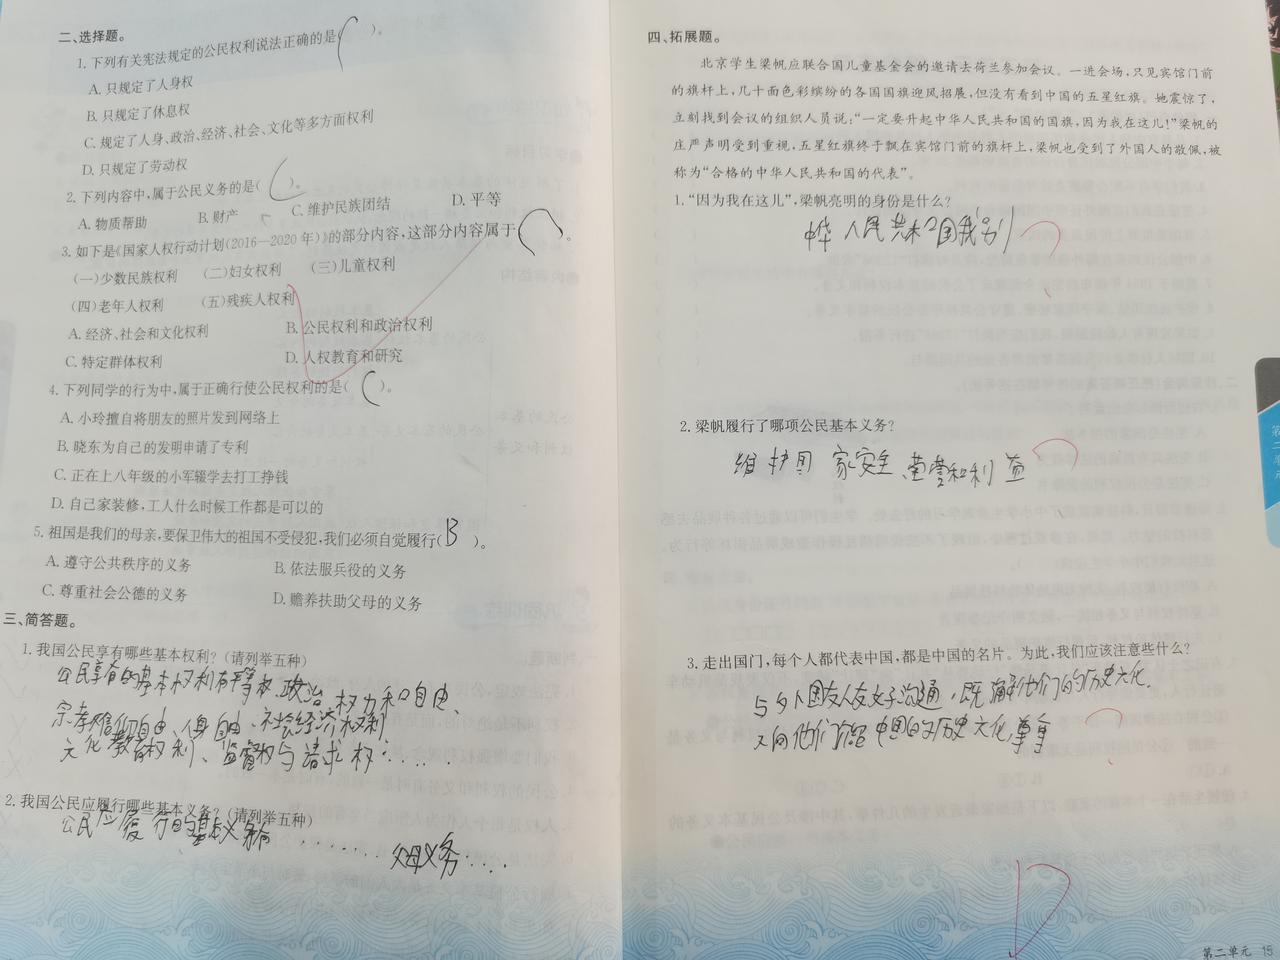 二、选择题。
1. 下列有关宪法规定的公民权利说法正确的是( C )。
A. 只规定了人身权
B. 只规定了休息权
C. 规定了人身、政治、经济、社会、文化等多方面权利
D. 只规定了劳动权
2. 下列内容中,属于公民义务的是( C )。
A. 物质帮助 B. 财产 C. 维护民族团结 D. 平等
3. 如下是《国家人权行动计划(2016—2020年)》的部分内容,这部分内容属于( C )。
(一)少数民族权利 (二)妇女权利 (三)儿童权利
(四)老年人权利 (五)残疾人权利
A. 经济、社会和文化权利 B. 公民权利和政治权利
C. 特定群体权利 D. 人权教育和研究
4. 下列同学的行为中,属于正确行使公民权利的是( C )。
A. 小玲擅自将朋友的照片发到网络上
B. 晓东为自己的发明申请了专利
C. 正在上八年级的小军辍学去打工挣钱
D. 自己家装修,工人什么时候工作都是可以的
5. 祖国是我们的母亲,要保卫伟大的祖国不受侵犯,我们必须自觉履行( B )。
A. 遵守公共秩序的义务 B. 依法服兵役的义务
C. 尊重社会公德的义务 D. 赡养扶助父母的义务
三、简答题。
1. 我国公民享有哪些基本权利?(请列举五种)
公民享有的基本权利有平等权、政治权力和自由、
宗孝信仰自由、人身自由、社会经济权利
文化教育权利、监督权与请求权……
2. 我国公民应履行哪些基本义务?(请列举五种)
公民应履行的基本义务有………父母义务……
四、拓展题。
北京学生梁帆应联合国儿童基金会的邀请去荷兰参加会议。一进会场,只见宾馆门前
的旗杆上,几十面色彩缤纷的各国国旗迎风招展,但没有看到中国的五星红旗。她震惊了,
立刻找到会议的组织人员说:“一定要升起中华人民共和国的国旗,因为我在这儿!”梁帆的
庄严声明受到重视,五星红旗终于飘在宾馆门前的旗杆上,梁帆也受到了外国人的敬佩,被
称为“合格的中华人民共和国的代表”。
1. “因为我在这儿”,梁帆亮明的身份是什么?
中华人民共和国
2. 梁帆履行了哪项公民基本义务?
维护国家安全、荣誉和利益
3. 走出国门,每个人都代表中国,都是中国的名片。为此,我们应该注意些什么?
与外国友人友好沟通,既了解他们的历史文化
又向他们介绍中国的历史文化
第二单元 15